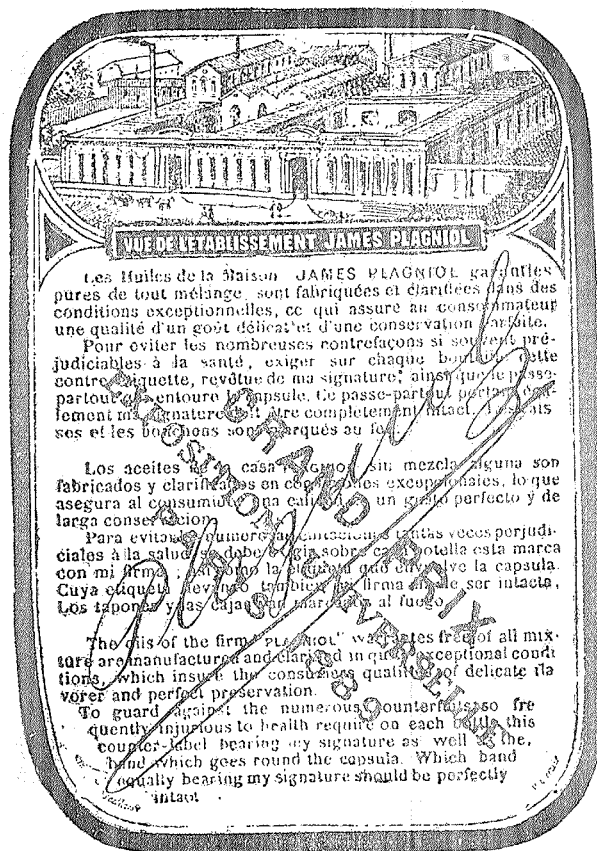 VUE DE L'ETABLISSEMENT JAMES PLAGNIOL
Les Huiles de la Maison JAMES PLAGNIOL garanties
pures de tout mélange, sont fabriquées et clarifiées dans des
conditions exceptionnelles, ce qui assure au consommateur
une qualité d'un goût délicat et d'une conservation parfaite.
Pour éviter les nombreuses contrefaçons si souvent pré-
judiciables à la santé, exiger sur chaque bouteille cette
contre-étiquette, revêtue de ma signature, ainsi que le passe-
partout qui entoure la capsule. Ce passe-partout portant éga-
lement ma signature doit être complètement intact. Les cais-
ses et les bouchons sont marqués au feu
Los aceites de la casa PLAGNIOL sin mezcla alguna son
fabricados y clarificados en condiciones excepcionales, lo que
asegura al consumidor una calidad de un gusto perfecto y de
larga conservacion
Para evitar numerosas tantas veces perjudi-
ciales à la salud, se debe exigir sobre cada botella esta marca
con mi firma; asi como la etiqueta que envuelve la capsula.
Cuya etiqueta llevando tambien firma debe ser intacta,
Los tapones y las cajas van marcados al fuego
The oils of the firm "PLAGNIOL" warrantes free of all mix-
ture are manufactured and clarified in quite exceptional condi
tions, which insure the consumers qualities of delicate fla
vorer and perfect preservation.
To guard against the numerous counterfeits so fre
quently injurious to health require on each bottle this
counter-label bearing my signature as well as the,
band which goes round the capsula. Which band
equally bearing my signature should be perfectly
intact
GRAND PRIX
EXPOSITION UNIVERSELLE
PARIS 1889